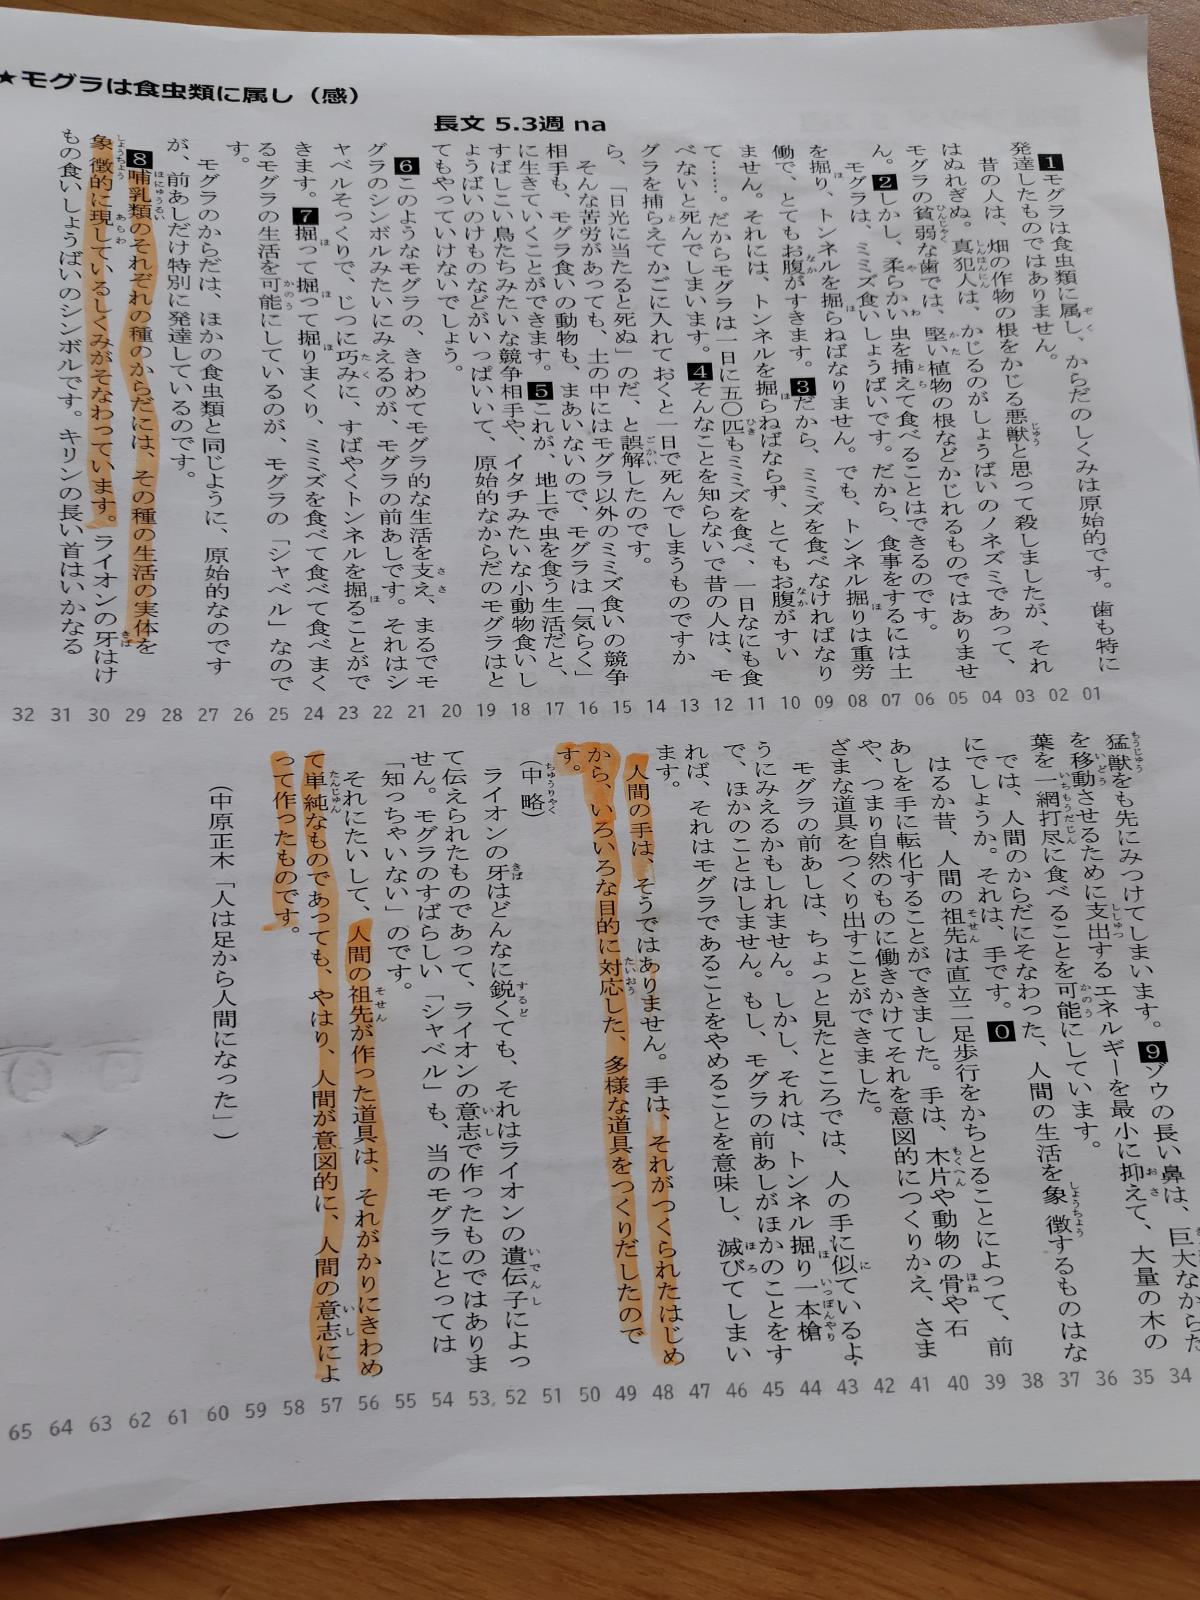 ★モグラは食虫類に属し（感）
長文 5.3週 na
1モグラは食虫類に属し、からだのしくみは原始的です。歯も特に
発達したものではありません。
昔の人は、畑の作物の根をかじる悪獣と思って殺しましたが、それ
はぬれぎぬ。真犯人は、かじるのがしょうばいのノネズミであって、
モグラの貧弱な歯では、堅い植物の根などかじれるものではありませ
ん。2しかし、柔らかい虫を捕えて食べることはできるのです。
モグラは、ミミズ食いしょうばいです。だから、食事をするには土
を掘り、トンネルを掘らねばなりません。でも、トンネル掘りは重労
働で、とてもお腹がすきます。3だから、ミミズを食べなければなり
ません。それには、トンネルを掘らねばならず、とてもお腹がすい
て……。だからモグラは一日に五〇匹もミミズを食べ、一日なにも食
べないと死んでしまいます。4そんなことを知らないで昔の人は、モ
グラを捕らえてかごに入れておくと一日で死んでしまうものですか
ら、「日光に当たると死ぬ」のだ、と誤解したのです。
そんな苦労があっても、土の中にはモグラ以外のミミズ食いの競争
相手も、モグラ食いの動物も、まあいないので、モグラは「気らく」
に生きていくことができます。5これが、地上で虫を食う生活だと、
すばしこい鳥たちみたいな競争相手や、イタチみたいな小動物食いし
ょうばいのけものなどがいっぱいいて、原始的なからだのモグラはと
てもやっていけないでしょう。
6このようなモグラの、きわめてモグラ的な生活を支え、まるでモ
グラのシンボルみたいにみえるのが、モグラの前あしです。それはシ
ャベルそっくりで、じつに巧みに、すばやくトンネルを掘ることがで
きます。7掘って掘って掘りまくり、ミミズを食べて食べて食べまく
るモグラの生活を可能にしているのが、モグラの「シャベル」なので
す。
モグラのからだは、ほかの食虫類と同じように、原始的なのです
が、前あしだけ特別に発達しているのです。
8哺乳類のそれぞれの種のからだには、その種の生活の実体を
象徴的に現しているしくみがそなわっています。ライオンの牙はけ
もの食いしょうばいのシンボルです。キリンの長い首はいかなる
01 02 03 04 05 06 07 08 09 10 11 12 13 14 15 16 17 18 19 20 21 22 23 24 25 26 27 28 29 30 31 32
猛獣をも先にみつけてしまいます。9ゾウの長い鼻は、巨大なからだ
を移動させるために支出するエネルギーを最小に抑えて、大量の木の
葉を一網打尽に食べることを可能にしています。
では、人間のからだにそなわった、人間の生活を象徴するものはな
にでしょうか。それは、手です。0
はるか昔、人間の祖先は直立二足歩行をかちとることによって、前
あしを手に転化することができました。手は、木片や動物の骨や石
や、つまり自然のものに働きかけてそれを意図的につくりかえ、さま
ざまな道具をつくり出すことができました。
モグラの前あしは、ちょっと見たところでは、人の手に似ているよ
うにみえるかもしれません。しかし、それは、トンネル掘り一本槍
で、ほかのことはしません。もし、モグラの前あしがほかのことをす
れば、それはモグラであることをやめることを意味し、滅びてしまい
ます。
人間の手は、そうではありません。手は、それがつくられたはじめ
から、いろいろな目的に対応した、多様な道具をつくりだしたので
す。
（中略）
ライオンの牙はどんなに鋭くても、それはライオンの遺伝子によっ
て伝えられたものであって、ライオンの意志で作ったものではありま
せん。モグラのすばらしい「シャベル」も、当のモグラにとっては
「知っちゃいない」のです。
それにたいして、人間の祖先が作った道具は、それがかりにきわめ
て単純なものであっても、やはり、人間が意図的に、人間の意志によ
って作ったものです。
（中原正木「人は足から人間になった」）
34 35 36 37 38 39 40 41 42 43 44 45 46 47 48 49 50 51 52 53 54 55 56 57 58 59 60 61 62 63 64 65